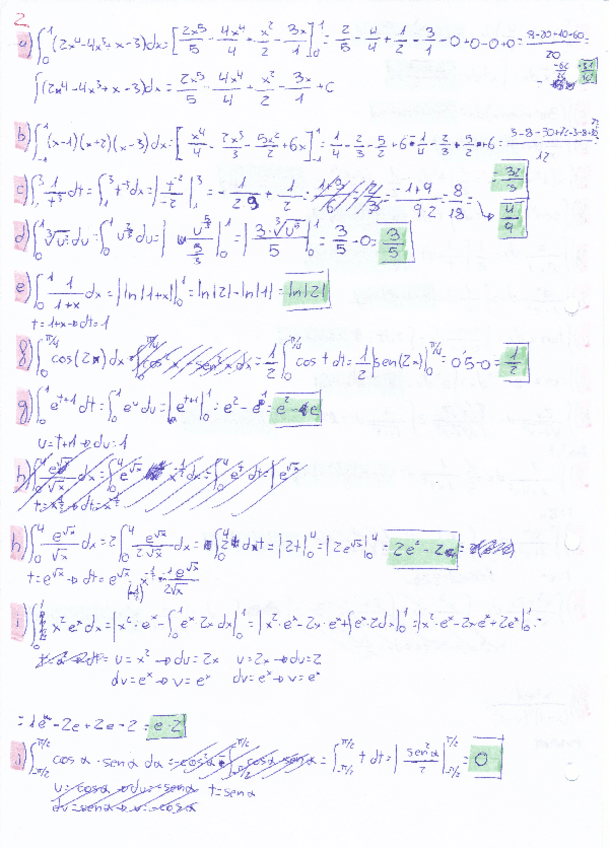 2.
a) ∫₀¹ (2x⁴-4x³+x-3)dx = [2x⁵/5 - 4x⁴/4 + x²/2 - 3x/1]₀¹ = 2/5 - 4/4 + 1/2 - 3/1 - 0+0-0+0 = 8-20+10-60/20 =
∫(2x⁴-4x³+x-3)dx = 2x⁵/5 - 4x⁴/4 + x²/2 - 3x/1 + C
b) ∫₋₁¹ (x-1)(x+2)(x-3)dx = [x⁴/4 - 2x³/3 - 5x²/2 + 6x]₋₁¹ = 1/4 - 2/3 - 5/2 + 6 - 1/4 - 2/3 + 5/2 + 6 =
c) ∫₁³ 1/t³ dt = ∫₁³ t⁻³dt = |t⁻²/-2|₁³ = -1/2·9 + 1/2 = -1+9/9·2 = 8/18 = 4/9
d) ∫₀¹ ∛u² du = ∫₀¹ u^(2/3) du = |u^(5/3)/(5/3)|₀¹ = |3·∛u⁵/5|₀¹ = 3/5 - 0 = 3/5
e) ∫₀¹ 1/1+x dx = |ln|1+x||₀¹ = ln|2| - ln|1| = ln|2|
t=1+x→dt=1
f) ∫₀^(π/4) cos(2x)dx = 1/2 ∫₀^(π/4) cos t dt = 1/2 |sen(2x)|₀^(π/4) = 0'5-0 = 1/2
g) ∫₀¹ e^(t+1) dt = ∫₀¹ e^u du = |e^(t+1)|₀¹ = e² - e¹ = e² - e
u=t+1→du=1
h)
h) ∫₀⁴ e^√x/√x dx = 2∫₀⁴ e^√x/2√x dx = ∫₀⁴ 2 dt = |2t|₀⁴ = |2e^√x|₀⁴ = 2e² - 2 =
t=e^√x → dt=e^√x
i) ∫₀¹ x²eˣdx = |x²·eˣ - ∫₀¹ eˣ 2x dx|₀¹ = |x²·eˣ - 2x·eˣ + ∫eˣ·2dx|₀¹ = |x²·eˣ - 2xeˣ + 2eˣ|₀¹ =
u=x² → du=2x u=2x → du=2
dv=eˣ → v=eˣ dv=eˣ → v=eˣ
= 1e - 2e + 2e - 2 = e-2
j) ∫₋π/2^(π/2) cos α · sen α dα = ∫₋π/2^(π/2) t dt = |sen²α/2|₋π/2^(π/2) = 0
t=sen α